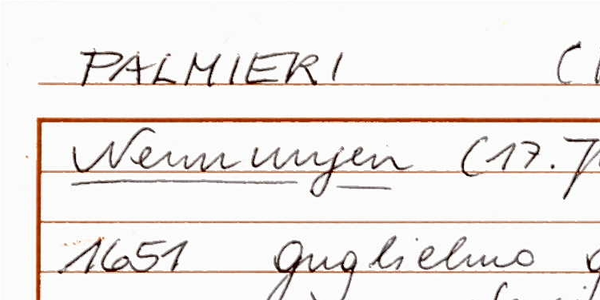 PALMIERI (
Nennungen (17. J
1651 Guglielmo